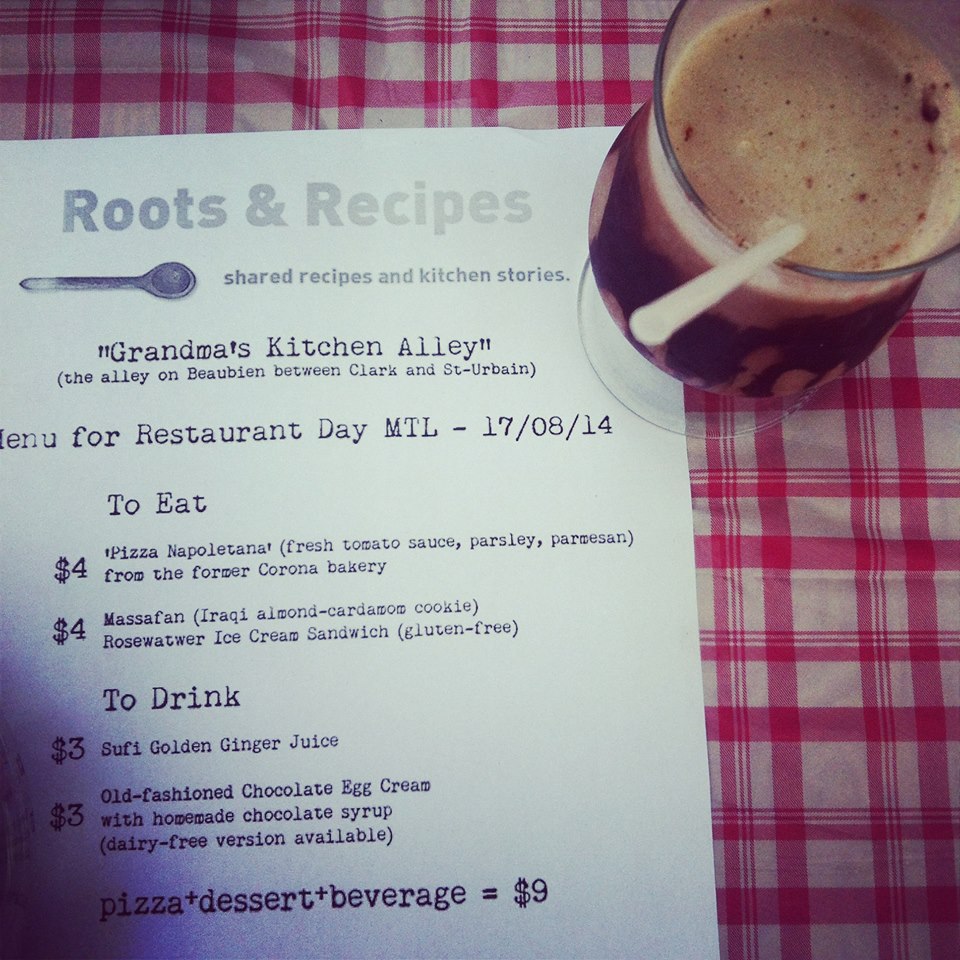 Roots & Recipes
shared recipes and kitchen stories.
"Grandma's Kitchen Alley"
(the alley on Beaubien between Clark and St-Urbain)
Menu for Restaurant Day MTL - 17/08/14
To Eat
$4 'Pizza Napoletana' (fresh tomato sauce, parsley, parmesan)
from the former Corona bakery
$4 Massafan (Iraqi almond-cardamom cookie)
Rosewatwer Ice Cream Sandwich (gluten-free)
To Drink
$3 Sufi Golden Ginger Juice
$3 Old-fashioned Chocolate Egg Cream
with homemade chocolate syrup
(dairy-free version available)
pizza+dessert+beverage = $9